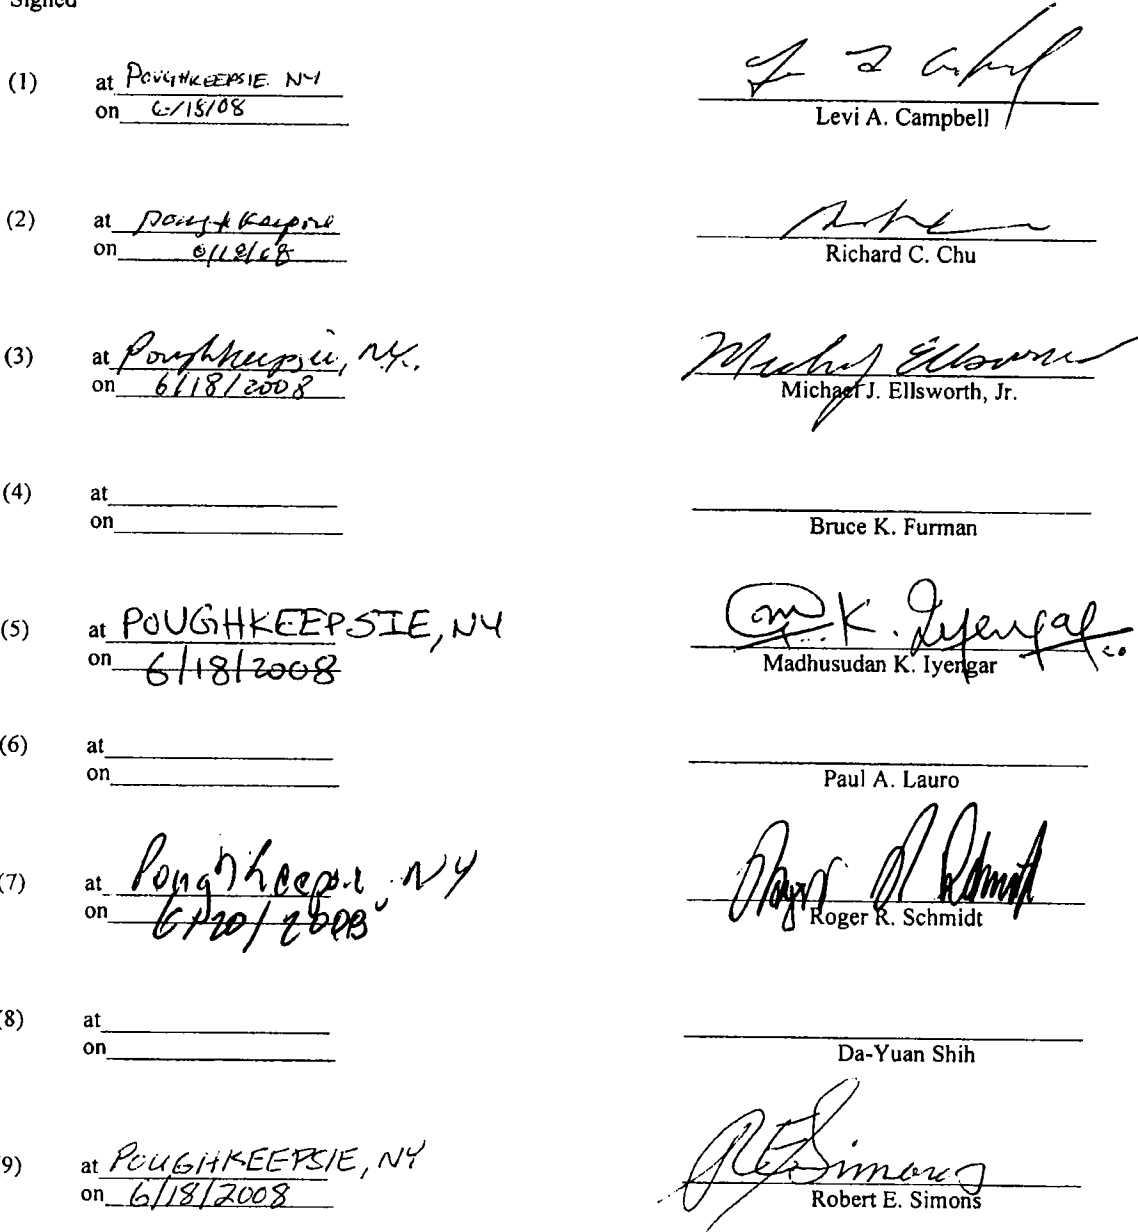 Signed
(1) at POUGHKEEPSIE. NY
on 6/18/08
Levi A. Campbell
(2) at Poughkeepsie
on 6/18/08
Richard C. Chu
(3) at Poughkeepsie, N.Y.
on 6/18/2008
Michael Ellsworth
Michael J. Ellsworth, Jr.
(4) at
on
Bruce K. Furman
(5) at POUGHKEEPSIE, NY
on 6/18/2008
M. K. Iyengar
Madhusudan K. Iyengar
(6) at
on
Paul A. Lauro
(7) at Poughkeepsie, NY
on 6/20/2008
Roger R Schmidt
Roger R. Schmidt
(8) at
on
Da-Yuan Shih
(9) at POUGHKEEPSIE, NY
on 6/18/2008
R E Simons
Robert E. Simons